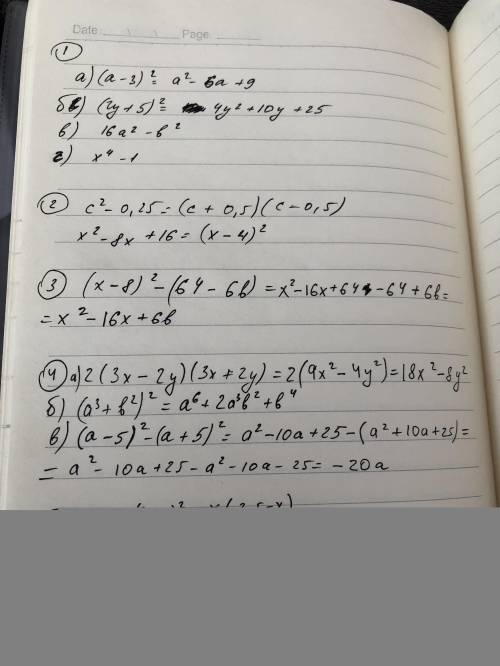 Date: Page
①
а) (a-3)² = a² - 6a + 9
б) (2y+5)² = 4y² + 10y + 25
в) 16a² - b²
г) x⁴ - 1
② c² - 0,25 = (c + 0,5)(c - 0,5)
x² - 8x + 16 = (x - 4)²
③ (x-8)² - (64 - 6b) = x² - 16x + 64 - 64 + 6b =
= x² - 16x + 6b
④ а) 2(3x - 2y)(3x + 2y) = 2(9x² - 4y²) = 18x² - 8y²
б) (a³ + b²)² = a⁶ + 2a³b² + b⁴
в) (a-5)² - (a+5)² = a² - 10a + 25 - (a² + 10a + 25) =
= a² - 10a + 25 - a² - 10a - 25 = -20a